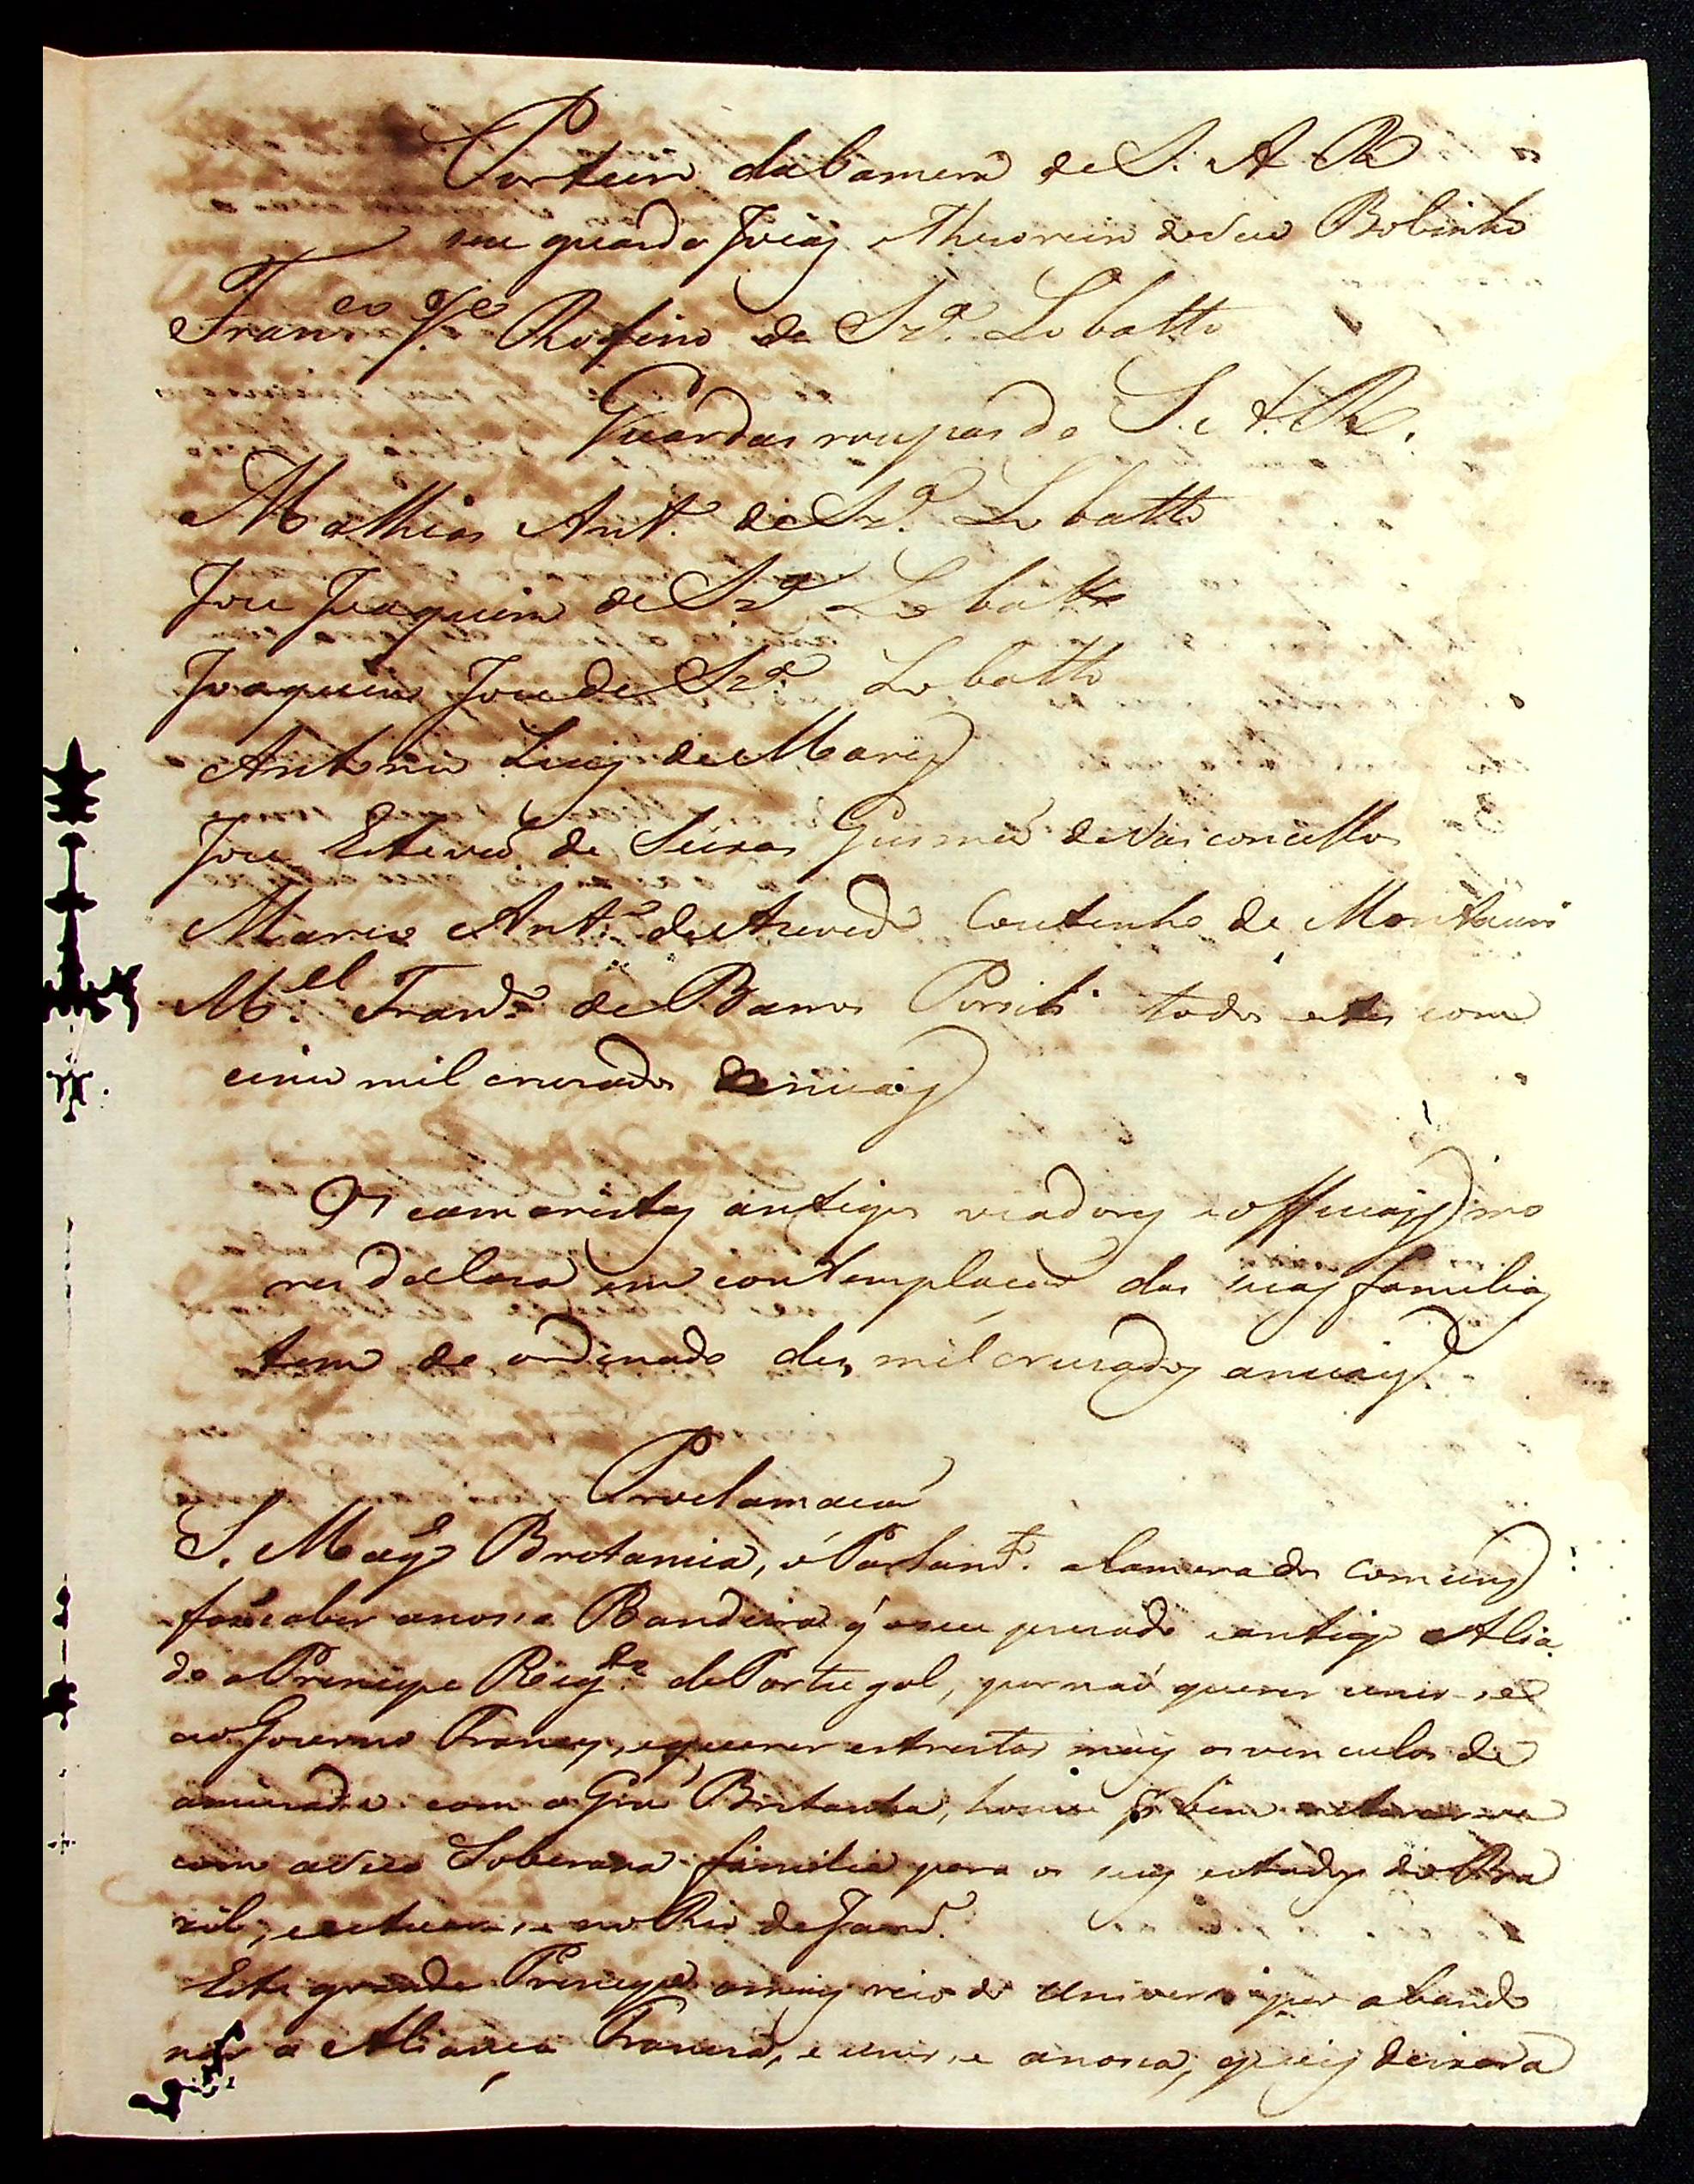 Porteiro da Camera de S. A. R
seu guarda Joias Thesoureiro do seu Bolcinho
Fran.co J.e Rofino de Sz.a Lobatto
Guardas roupas de S. A. R.
Mathias Ant.o de Sz.a Lobatto
Joze Joaquim de Sz.a Lobatto
Joaquim Joze de Sz.a Lobatto
Antonio Luiz de
Joze Estevaõ de Seixas Gusmaõ de Vasconcellos
Marco Ant.o de Azevedo Coutinho de Montauri
M.el Fran.co de Barros todos estes com
cinco mil cruzados anuais
Os camaristas antigos viadores e officiais mo
res da Casa em contemplacaõ das suas familias
tem de ordenado des mil cruzados anuais.
Proclamacaõ
S. Mag.e Britanica, o Parlam.to e Camera dos comũns
fas saber a nossa Bandeira q̃ o seu prezado e antigo Alia
do o Principe Reg.te de Portugal, por naõ querer unir-se
ao Governo Frances, e querer estreitar mais os vinculos de
amizade com a Grã Bretanha, houve p.r bem
com a sua Soberana familia para os seus estados do Bra
zil, e no Rio de Jan.ro
Este grande Principe o mais do Universo por abando
nar a Alianca Franceza, e unir-se a nossa, quis deixar a